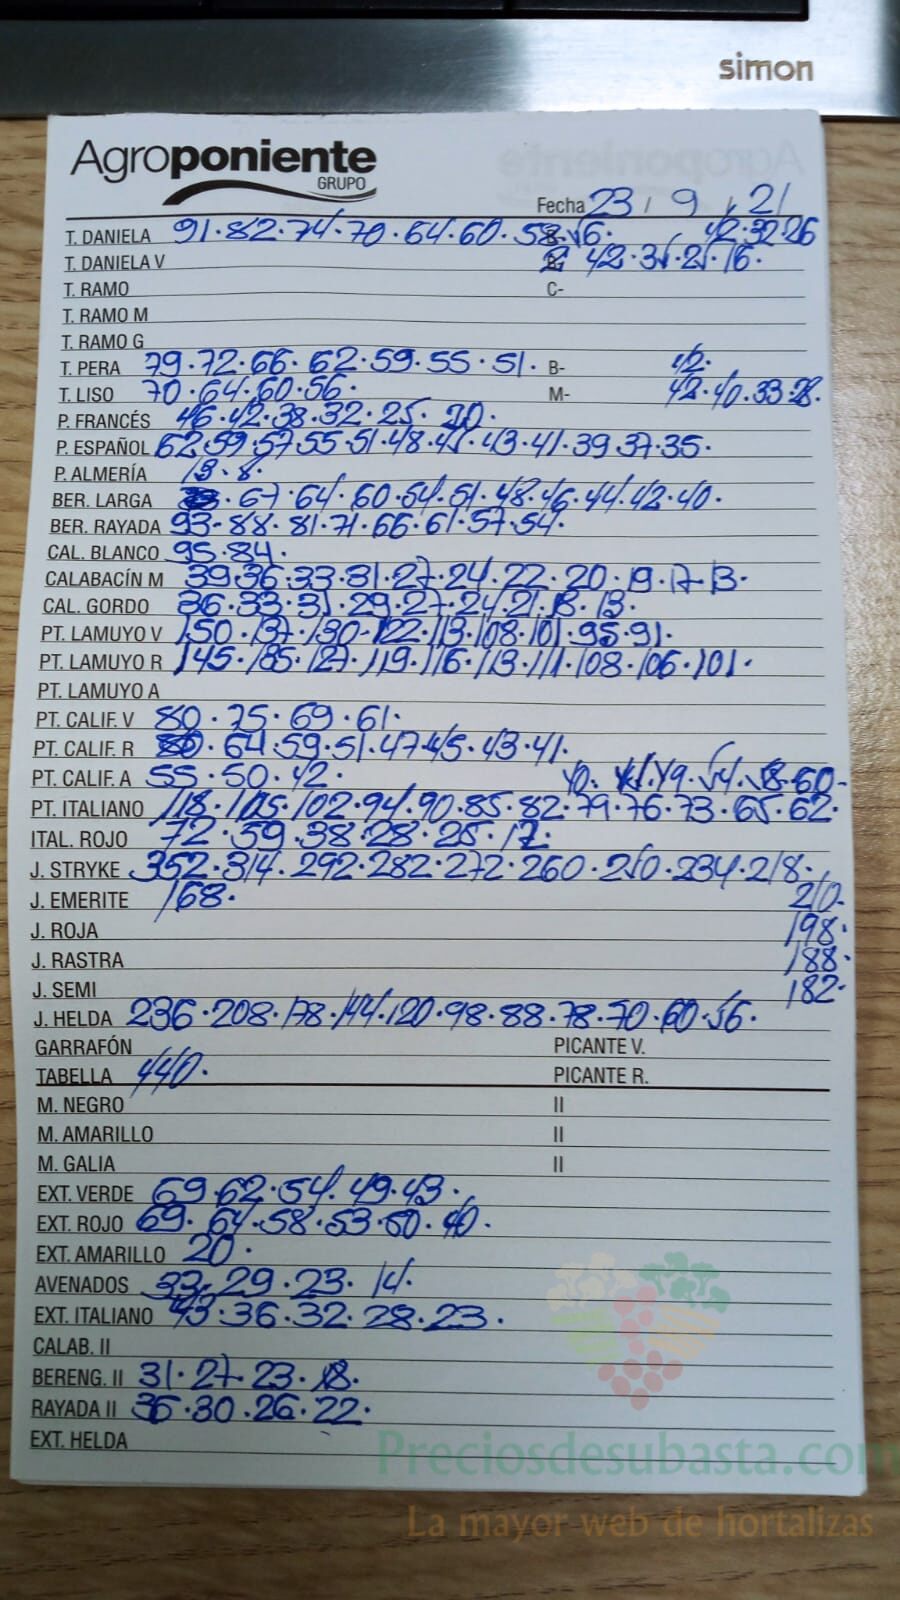 simon
Agroponiente
GRUPO
Fecha 23 / 9 / 21
T. DANIELA 91·82·74·70·64·60·58·56· 42·32·26
T. DANIELA V 42·35·25·16·
T. RAMO C-
T. RAMO M
T. RAMO G
T. PERA 79·72·66·62·59·55·51· B- 42·
T. LISO 70·64·60·56· M- 42·40·33·28·
P. FRANCÉS 46·42·38·32·25·20·
P. ESPAÑOL 62·59·57·55·51·48·45·43·41·39·37·35·
P. ALMERÍA 13·8·
BER. LARGA ·67·64·60·54·51·48·46·44·42·40·
BER. RAYADA 93·88·81·71·66·61·57·54·
CAL. BLANCO 95·84·
CALABACÍN M 39·36·33·31·27·24·22·20·19·17·13·
CAL. GORDO 36·33·31·29·27·24·21·18·13·
PT. LAMUYO V 150·137·130·122·113·108·101·95·91·
PT. LAMUYO R 145·135·127·119·116·113·111·108·106·101·
PT. LAMUYO A
PT. CALIF. V 80·75·69·61·
PT. CALIF. R 64·59·51·47·45·43·41·
PT. CALIF. A 55·50·42· 49·54·58·60-
PT. ITALIANO 118·105·102·94·90·85·82·79·76·73·65·62·
ITAL. ROJO 72·59·38·28·25·17·
J. STRYKE 352·314·292·282·272·260·250·234·218·
J. EMERITE 168· 210·
J. ROJA 198·
J. RASTRA 188·
J. SEMI 182·
J. HELDA 236·208·178·144·120·98·88·78·70·60·56·
GARRAFÓN PICANTE V.
TABELLA 440· PICANTE R.
M. NEGRO II
M. AMARILLO II
M. GALIA II
EXT. VERDE 69·62·54·49·43·
EXT. ROJO 69·64·58·53·50·40·
EXT. AMARILLO 20·
AVENADOS 33·29·23·14·
EXT. ITALIANO 43·36·32·28·23·
CALAB. II
BERENG. II 31·27·23·18·
RAYADA II 35·30·26·22·
EXT. HELDA
Preciosdesubasta.com
La mayor web de hortalizas